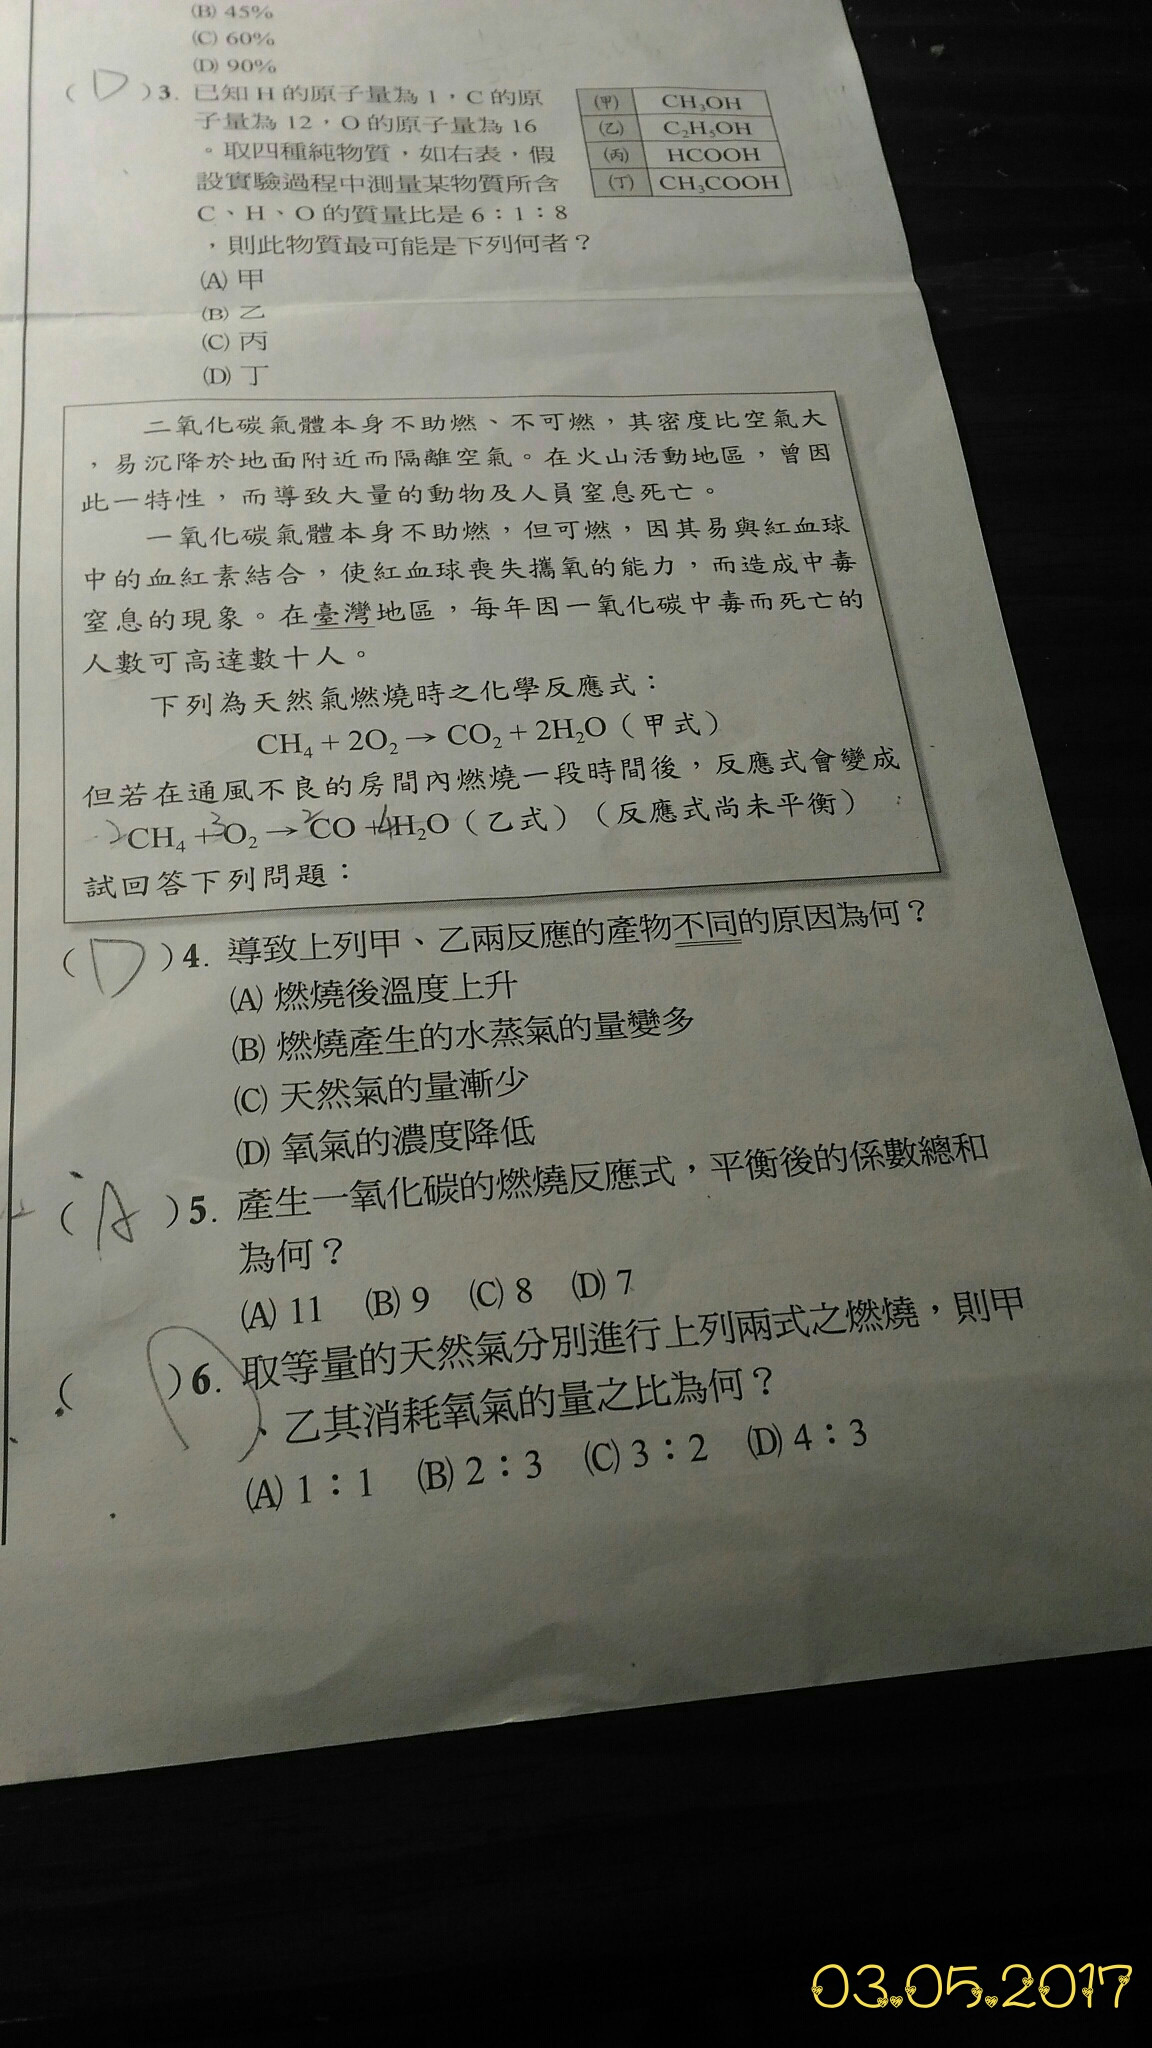 (B) 45%
(C) 60%
(D) 90%
( D )3. 已知 H 的原子量為 1，C 的原
子量為 12，O 的原子量為 16
。取四種純物質，如右表，假
設實驗過程中測量某物質所含
C、H、O 的質量比是 6：1：8
，則此物質最可能是下列何者？
(甲) CH₃OH
(乙) C₂H₅OH
(丙) HCOOH
(丁) CH₃COOH
(A) 甲
(B) 乙
(C) 丙
(D) 丁
二氧化碳氣體本身不助燃、不可燃，其密度比空氣大
，易沉降於地面附近而隔離空氣。在火山活動地區，曾因
此一特性，而導致大量的動物及人員窒息死亡。
一氧化碳氣體本身不助燃，但可燃，因其易與紅血球
中的血紅素結合，使紅血球喪失攜氧的能力，而造成中毒
窒息的現象。在臺灣地區，每年因一氧化碳中毒而死亡的
人數可高達數十人。
下列為天然氣燃燒時之化學反應式：
CH₄ + 2O₂ → CO₂ + 2H₂O（甲式）
但若在通風不良的房間內燃燒一段時間後，反應式會變成
2CH₄ + 3O₂ → 2CO + 4H₂O（乙式）（反應式尚未平衡）
試回答下列問題：
( D )4. 導致上列甲、乙兩反應的產物不同的原因為何？
(A) 燃燒後溫度上升
(B) 燃燒產生的水蒸氣的量變多
(C) 天然氣的量漸少
(D) 氧氣的濃度降低
( A )5. 產生一氧化碳的燃燒反應式，平衡後的係數總和
為何？
(A) 11 (B) 9 (C) 8 (D) 7
( )6. 取等量的天然氣分別進行上列兩式之燃燒，則甲
、乙其消耗氧氣的量之比為何？
(A) 1：1 (B) 2：3 (C) 3：2 (D) 4：3
03.05.2017